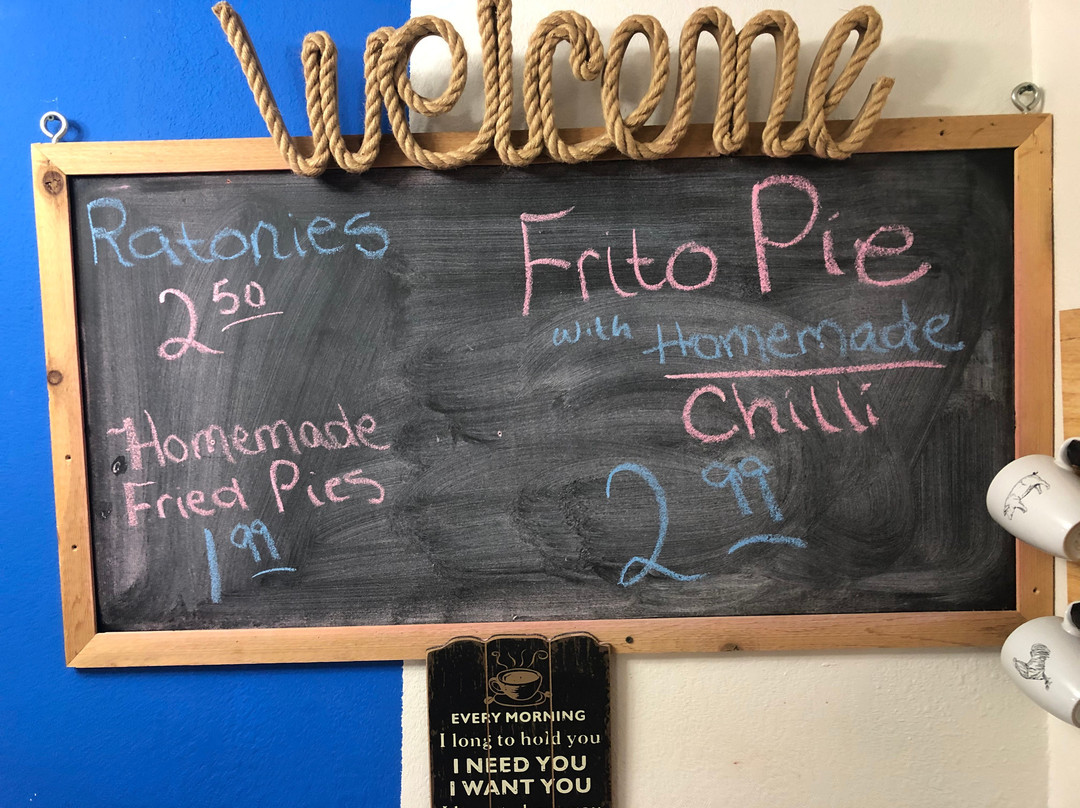 welcome
Ratonies
2 50
Homemade
Fried Pies
1 99
Frito Pie
with Homemade
Chilli
2 99
EVERY MORNING
I long to hold you
I NEED YOU
I WANT YOU